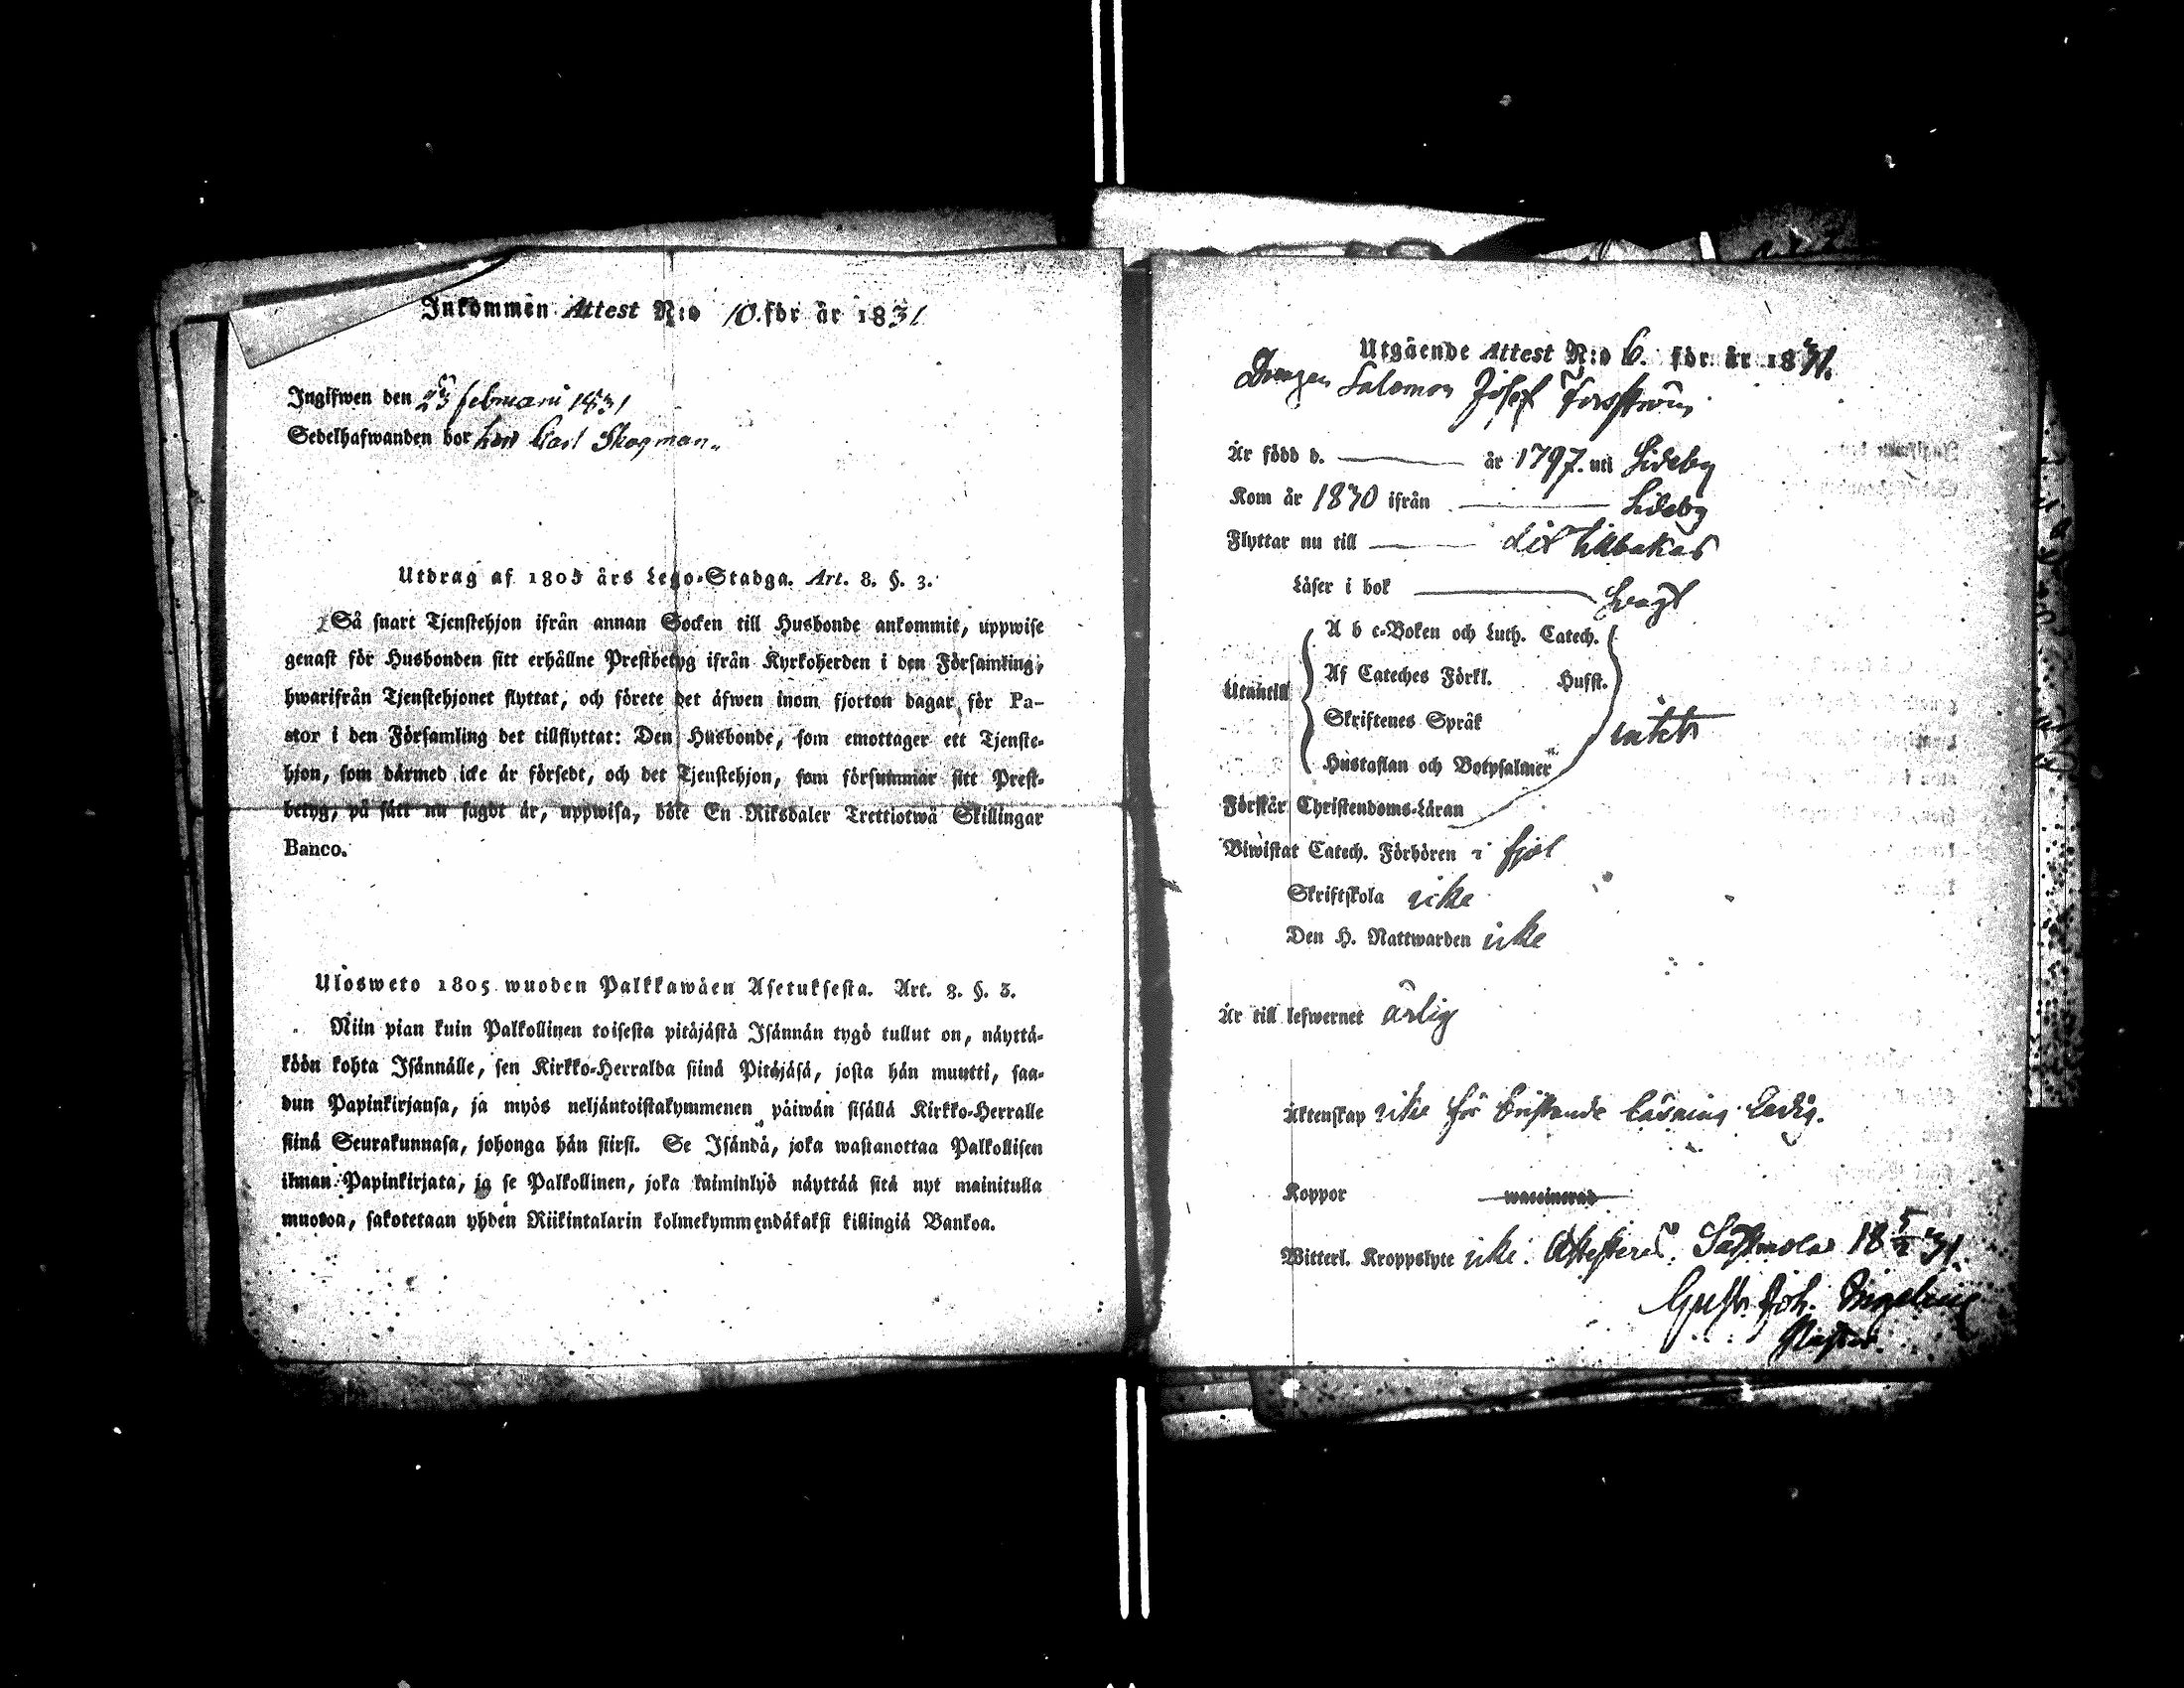 Inkommen Attest N:o 10. för år 1831
Ingifwen den 23 februarii 1831
Sedelhafwanden bor hos Carl Skogman.
Utdrag af 1805 års Lego-Stadga. Art. 8. §. 3.
Så snart Tjenstehjon ifrån annan Socken till Husbonde ankommit, uppwise
genast för Husbonden sitt erhållne Prestbetyg ifrån Kyrkoherden i den Församling,
hwarifrån Tjenstehjonet flyttat, och förete det äfwen inom fjorton dagar för Pa-
stor i den Församling det tillflyttat: Den Husbonde, som emottager ett Tjenste-
hjon, som därmed icke är försedt, och det Tjenstehjon, som försummar sitt Prest-
betyg, på sätt nu sagdt är, uppwisa, böte En Riksdaler Trettiotwå Skillingar
Banco.
Ulosweto 1805 wuoden Palkkawäen Asetuksesta. Art. 8. §. 3.
Niin pian kuin Palkollinen toisesta pitäjästä Isännän tygö tullut on, näyttä-
köön kohta Isännälle, sen Kirkko-Herralda siinä Pitäjäsä, josta hän muutti, saa-
dun Papinkirjansa, ja myös neljäntoistakymmenen päiwän sisällä Kirkko-Herralle
siinä Seurakunnasa, johonga hän siirsi. Se Isändä, joka wastanottaa Palkollisen
ilman Papinkirjata, ja se Palkollinen, joka laiminlyö näyttää sitä nyt mainitulla
muotoa, sakotetaan yhden Riikintalarin kolmekymmendäkaksi killingiä Bankoa.
Utgående Attest N:o 6. för år 1831.
Drengen Salomon Josef Forsström
Är född d. år 1797. uti Sideby
Kom år 1830 ifrån Sideby
Flyttar nu till dit tillbakas
Läser i bok svagt
A b c-Boken och Luth. Catech.
Af Cateches Förkl. Husst.
Utantill
Skriftenes Språk
intet
Hustaflan och Botpsalmer
Förstår Christendoms-Läran
Biwistat Catech. Förhören i fjol
Skriftskola icke
Den H. Nattwarden icke
Är till lefwernet ärlig
Äktenskap icke för bristande läsning ledig.
Koppor waccinerad
Witterl. Kroppslyte icke. Attesterar, Sastmola 18 5/2 31.
Gust. Joh.
Pastor.